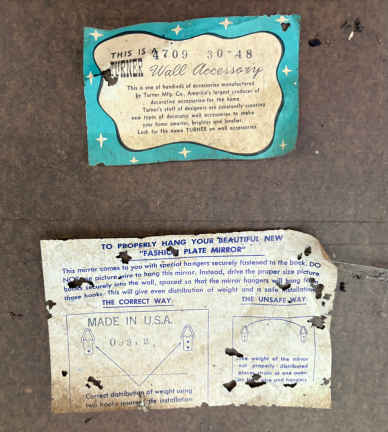 THIS IS A 4709 30-48
TURNER Wall Accessory
This is one of hundreds of accessories manufactured
by Turner Mfg. Co., America's largest producer of
decorative accessories for the home.
Turner's staff of designers are constantly creating
new types of decorator wall accessories to make
your home smarter, brighter and lovelier.
Look for the name TURNER on wall accessories.
TO PROPERLY HANG YOUR BEAUTIFUL NEW
"FASHION PLATE MIRROR"
This mirror comes to you with special hangers securely fastened to the back. DO
NOT use picture wire to hang this mirror. Instead, drive the proper size picture
hooks securely into the wall, spaced so that the mirror hangers will hang from
those hooks. This will give even distribution of weight and a safe installation.
THE CORRECT WAY
THE UNSAFE WAY
MADE IN U.S.A.
Correct distribution of weight using
two hooks insures the installation
The weight of the mirror
not properly distributed
places strain at one
wire and hangers